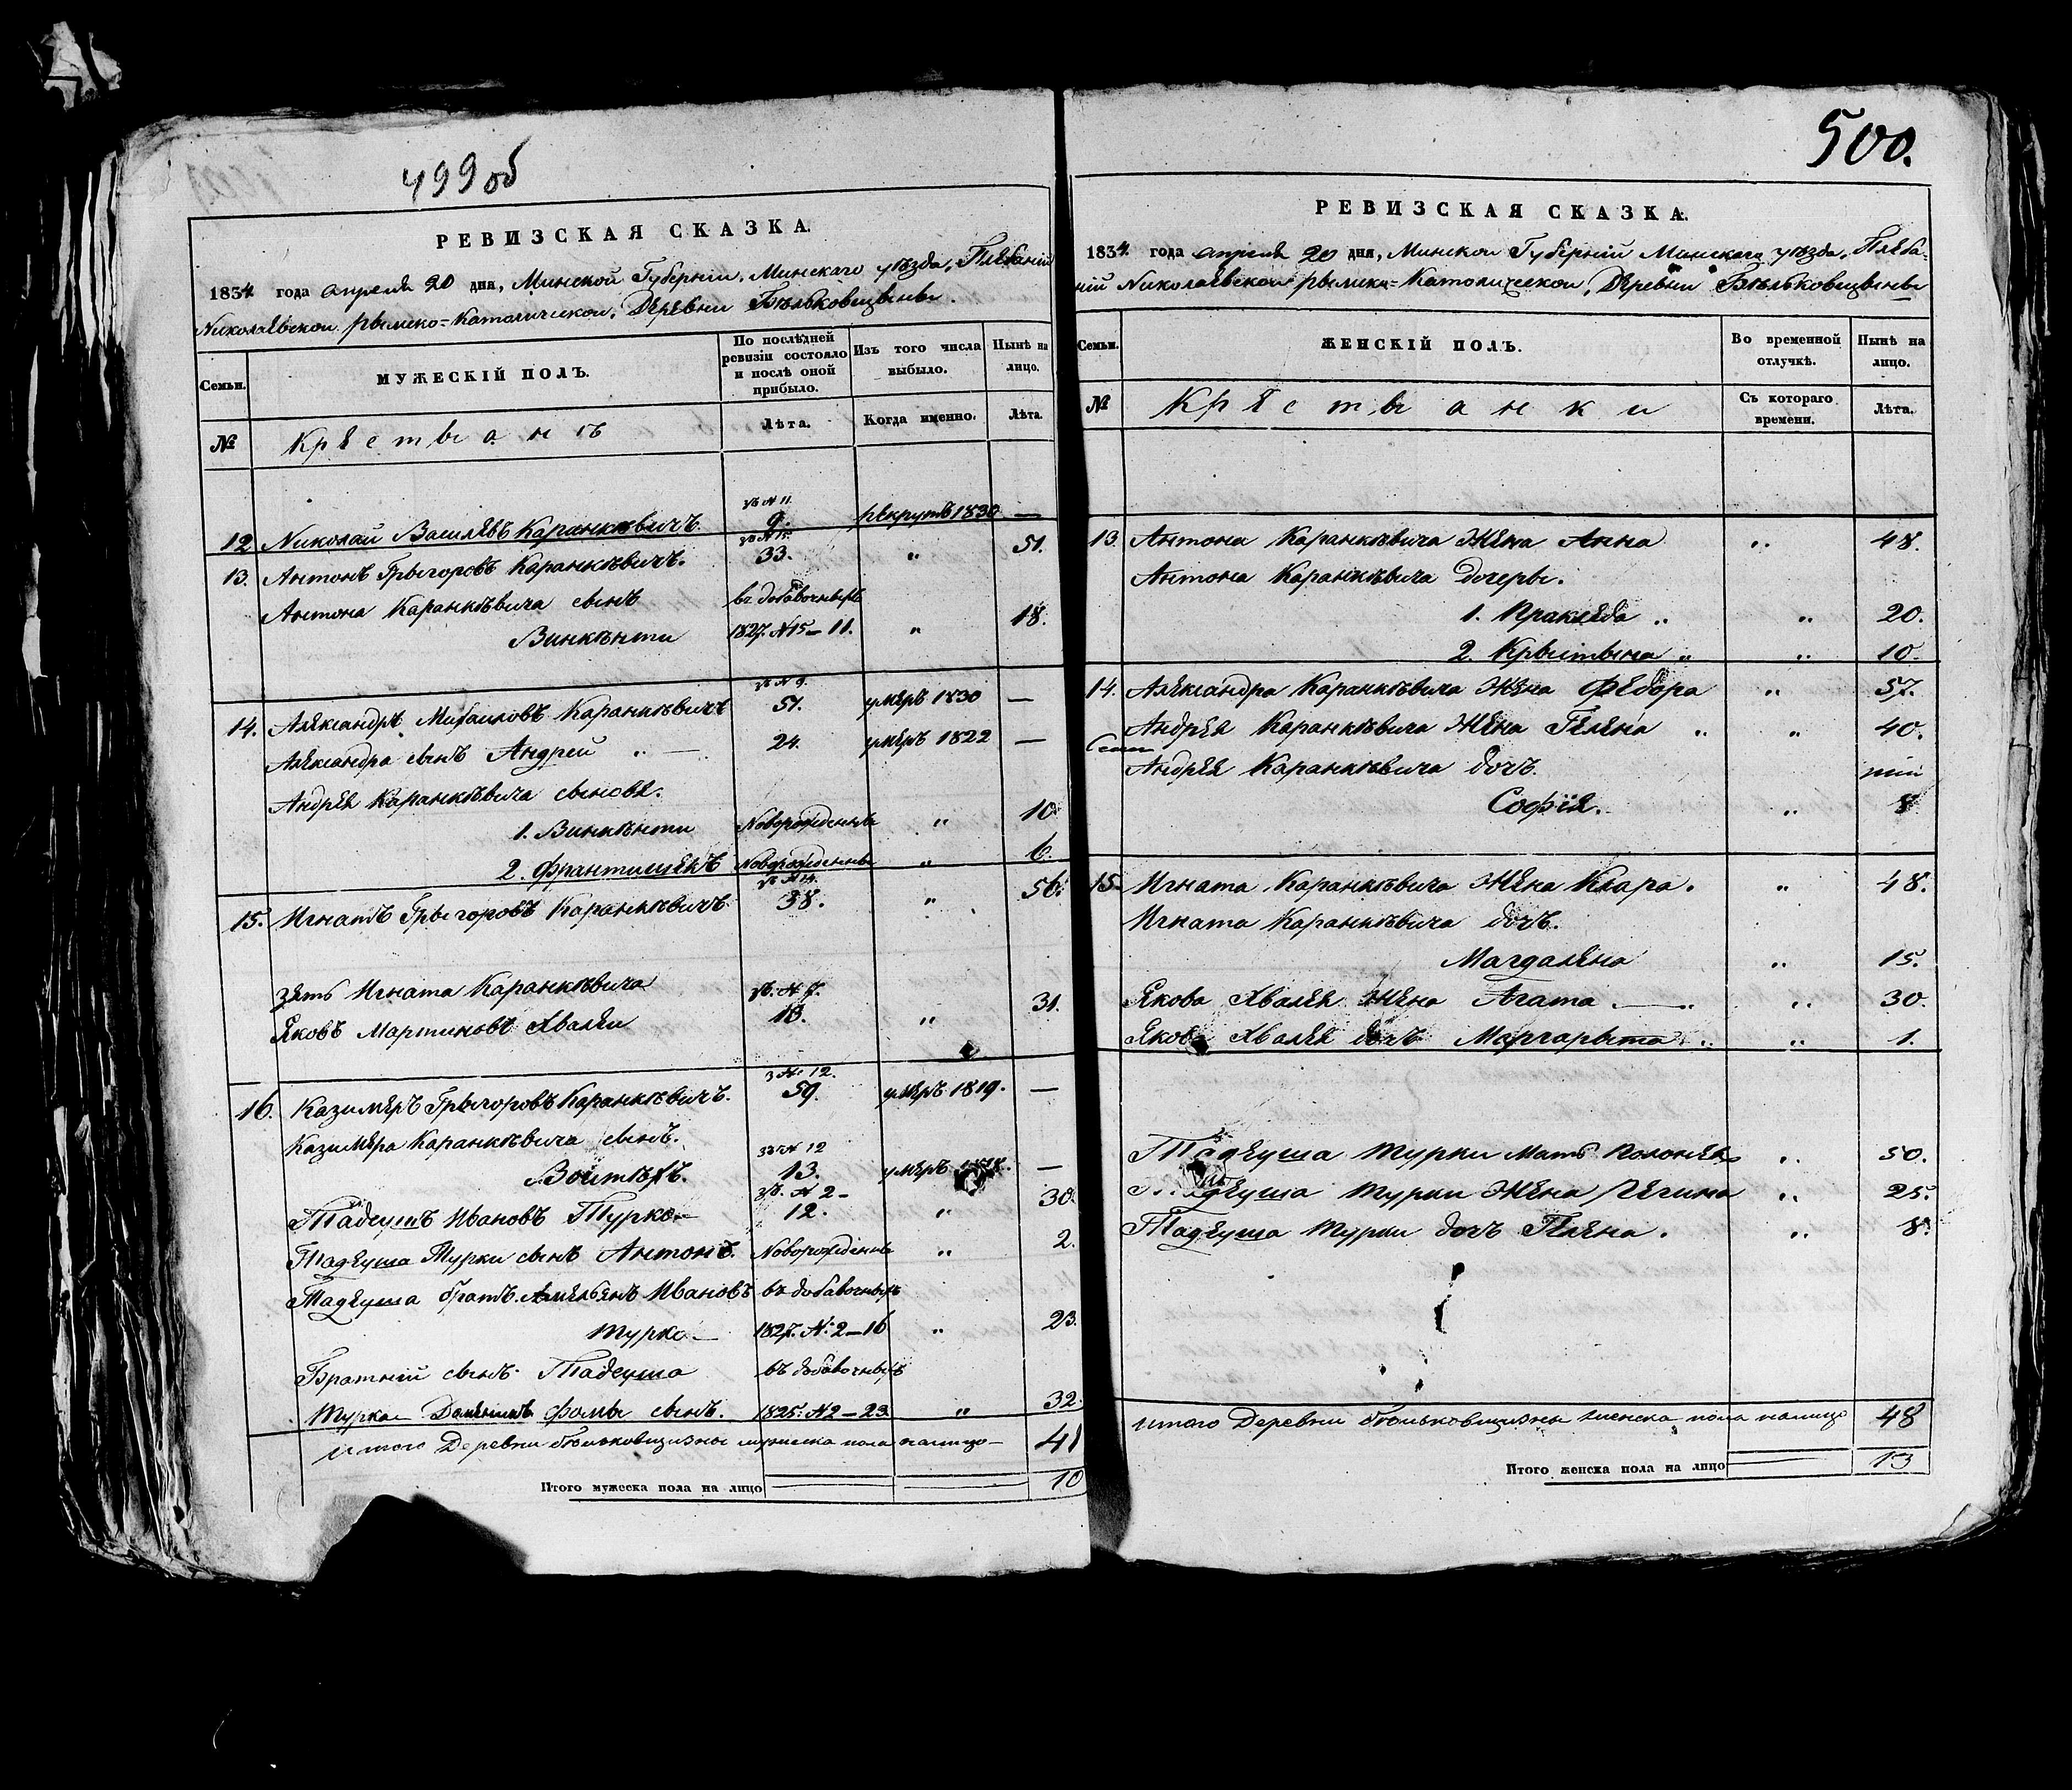 499 об
РЕВИЗСКАЯ СКАЗКА.
1834 года апреля 20 дня, Минской Губернии, Минскаго уѣзда, Плебаніи
Николаевской рымско=Католической, Деревни Бѣльковщызны.
Семьи. МУЖЕСКІЙ ПОЛЪ. По послѣдней ревизіи состояло и послѣ оной прибыло. Изъ того числа выбыло. Нынѣ на лицо.
№ Крестьанъ Лѣта. Когда именно. Лѣта.
зъ N 11
12 Николай Василевъ Каранкѣвичъ. 9. рекрутъ 1830 —
13. Антонъ Грыгоровъ Каранкѣвичъ. 33. „ 51.
Антона Каранкѣвича сынъ въ добавочныхъ
Винкѣнти 1827. N15–11. „ 18.
зъ N 9.
14. Александръ Михаиловъ Каранкѣвичъ 51. умеръ 1830 —
Александра сынъ Андрей „ — 24. умеръ 1822 —
Андрея Каранкѣвича сыновя.
1. Винкѣнти Новорожденны „ 10
2. Франтишекъ Новорожденны „ 6.
зъ N 14.
15. Игнатъ Грыгоровъ Каранкѣвичъ 38. „ 56.
зять Игната Каранкѣвича зъ. N 7.
Яковъ Мартиновъ Хвалеи 13. „ 31.
з N. 12.
16. Казимеръ Грыгоровъ Каранкѣвичъ. 59. умеръ 1819. —
Казимера Каранкѣвича сынъ. зъ N 12
Войтѣхъ. 13. умеръ —
зъ. N 2–
Тадеушъ Ивановъ Турко– 12. „ 30.
Тадеуша Турки сынъ Антонъ. Новорожденны „ 2.
Тадеуша братъ Амельянъ Ивановъ въ добавочныхъ
Турко– 1827. N. 2–16 „ 23.
Братній сынъ Тадеуша въ добавочныхъ
Турка Фомы сынъ. 1825: N2–23 „ 32.
итого Деревни Бѣльковщизны мужеска пола налицо– 41
Итого мужеска пола на лицо 10
500.
РЕВИЗСКАЯ СКАЗКА.
1834 года апреля 20 дня, Минской Губерніи Минскаго уѣзда, Плеба-
ніи Николаевской рымско=Католической, Деревни Бѣльковщызны
Семьи. ЖЕНСКІЙ ПОЛЪ. Во временной отлучкѣ. Нынѣ на лицо.
№ Крестьанки Съ котораго времени. Лѣта.
13. Антона Каранкѣвича Жена Анна „ 48.
Антона Каранкѣвича дочеры.
1. Пракседа „ „ 20.
2. Крыстына „ „ 10.
14. Александра Каранкѣвича Жена Федора „ 57.
Андрея Каранкѣвича Жена Гелена „ „ 40.
Андрея Каранкѣвича дочъ.
Софія. „ 8
15. Игната Каранкѣвича Жена Клара. „ 48.
Игната Каранкѣвича дочъ.
Магдалена „ 15.
Якова Хвалея Жена Агата — „ „ 30.
Якова Хвалея дочъ Маргарыта „ „ 1.
Тадеуша Турки Мать Полонея „ 50.
Тадеуша Турки Жена Регина „ 25.
Тадеуша Турки дочъ Гелена. „ 8.
итого Деревни Бѣльковщизны женска пола налицо 48
Итого женска пола на лицо 13